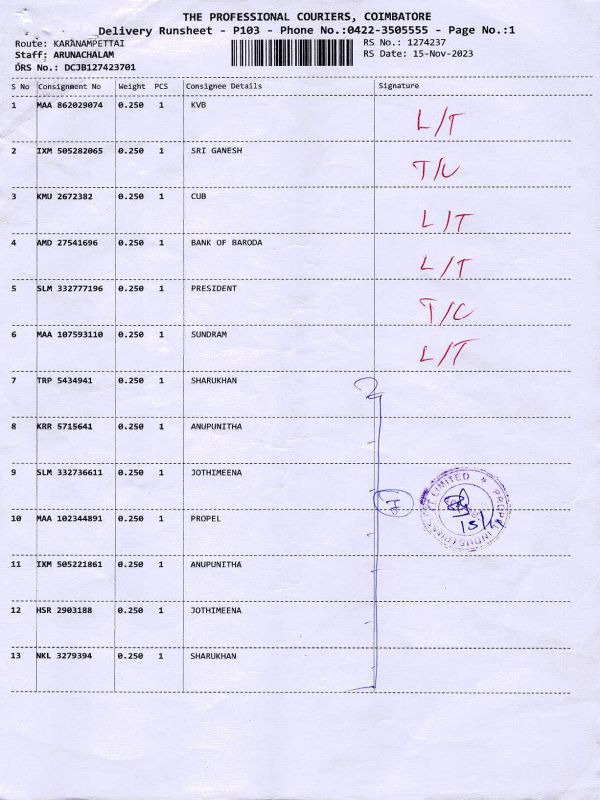 THE PROFESSIONAL COURIERS, COIMBATORE
Delivery Runsheet - P103 - Phone No.:0422-3505555 - Page No.:1
Route: KARANAMPETTAI RS No.: 1274237
Staff: ARUNACHALAM RS Date: 15-Nov-2023
DRS No.: DCJB127423701
S No Consignment No Weight PCS Consignee Details Signature
1 MAA 862029074 0.250 1 KVB L/T
2 IXM 505282065 0.250 1 SRI GANESH T/C
3 KMU 2672382 0.250 1 CUB L/T
4 AMD 27541696 0.250 1 BANK OF BARODA L/T
5 SLM 332777196 0.250 1 PRESIDENT T/C
6 MAA 107593110 0.250 1 SUNDRAM L/T
7 TRP 5434941 0.250 1 SHARUKHAN
8 KRR 5715641 0.250 1 ANUPUNITHA
9 SLM 332736611 0.250 1 JOTHIMEENA
10 MAA 102344891 0.250 1 PROPEL
11 IXM 505221861 0.250 1 ANUPUNITHA
12 HSR 2903188 0.250 1 JOTHIMEENA
13 NKL 3279394 0.250 1 SHARUKHAN
7
PROPEL INDUSTRIES LIMITED